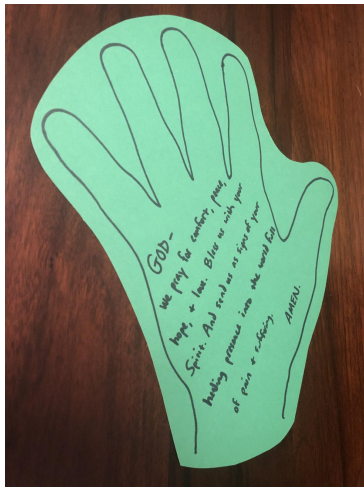 GOD-
We pray for comfort, peace,
hope, & love. Bless us with your
Spirit. And send us as signs of your
healing presence into the world full
of pain & suffering.
AMEN.